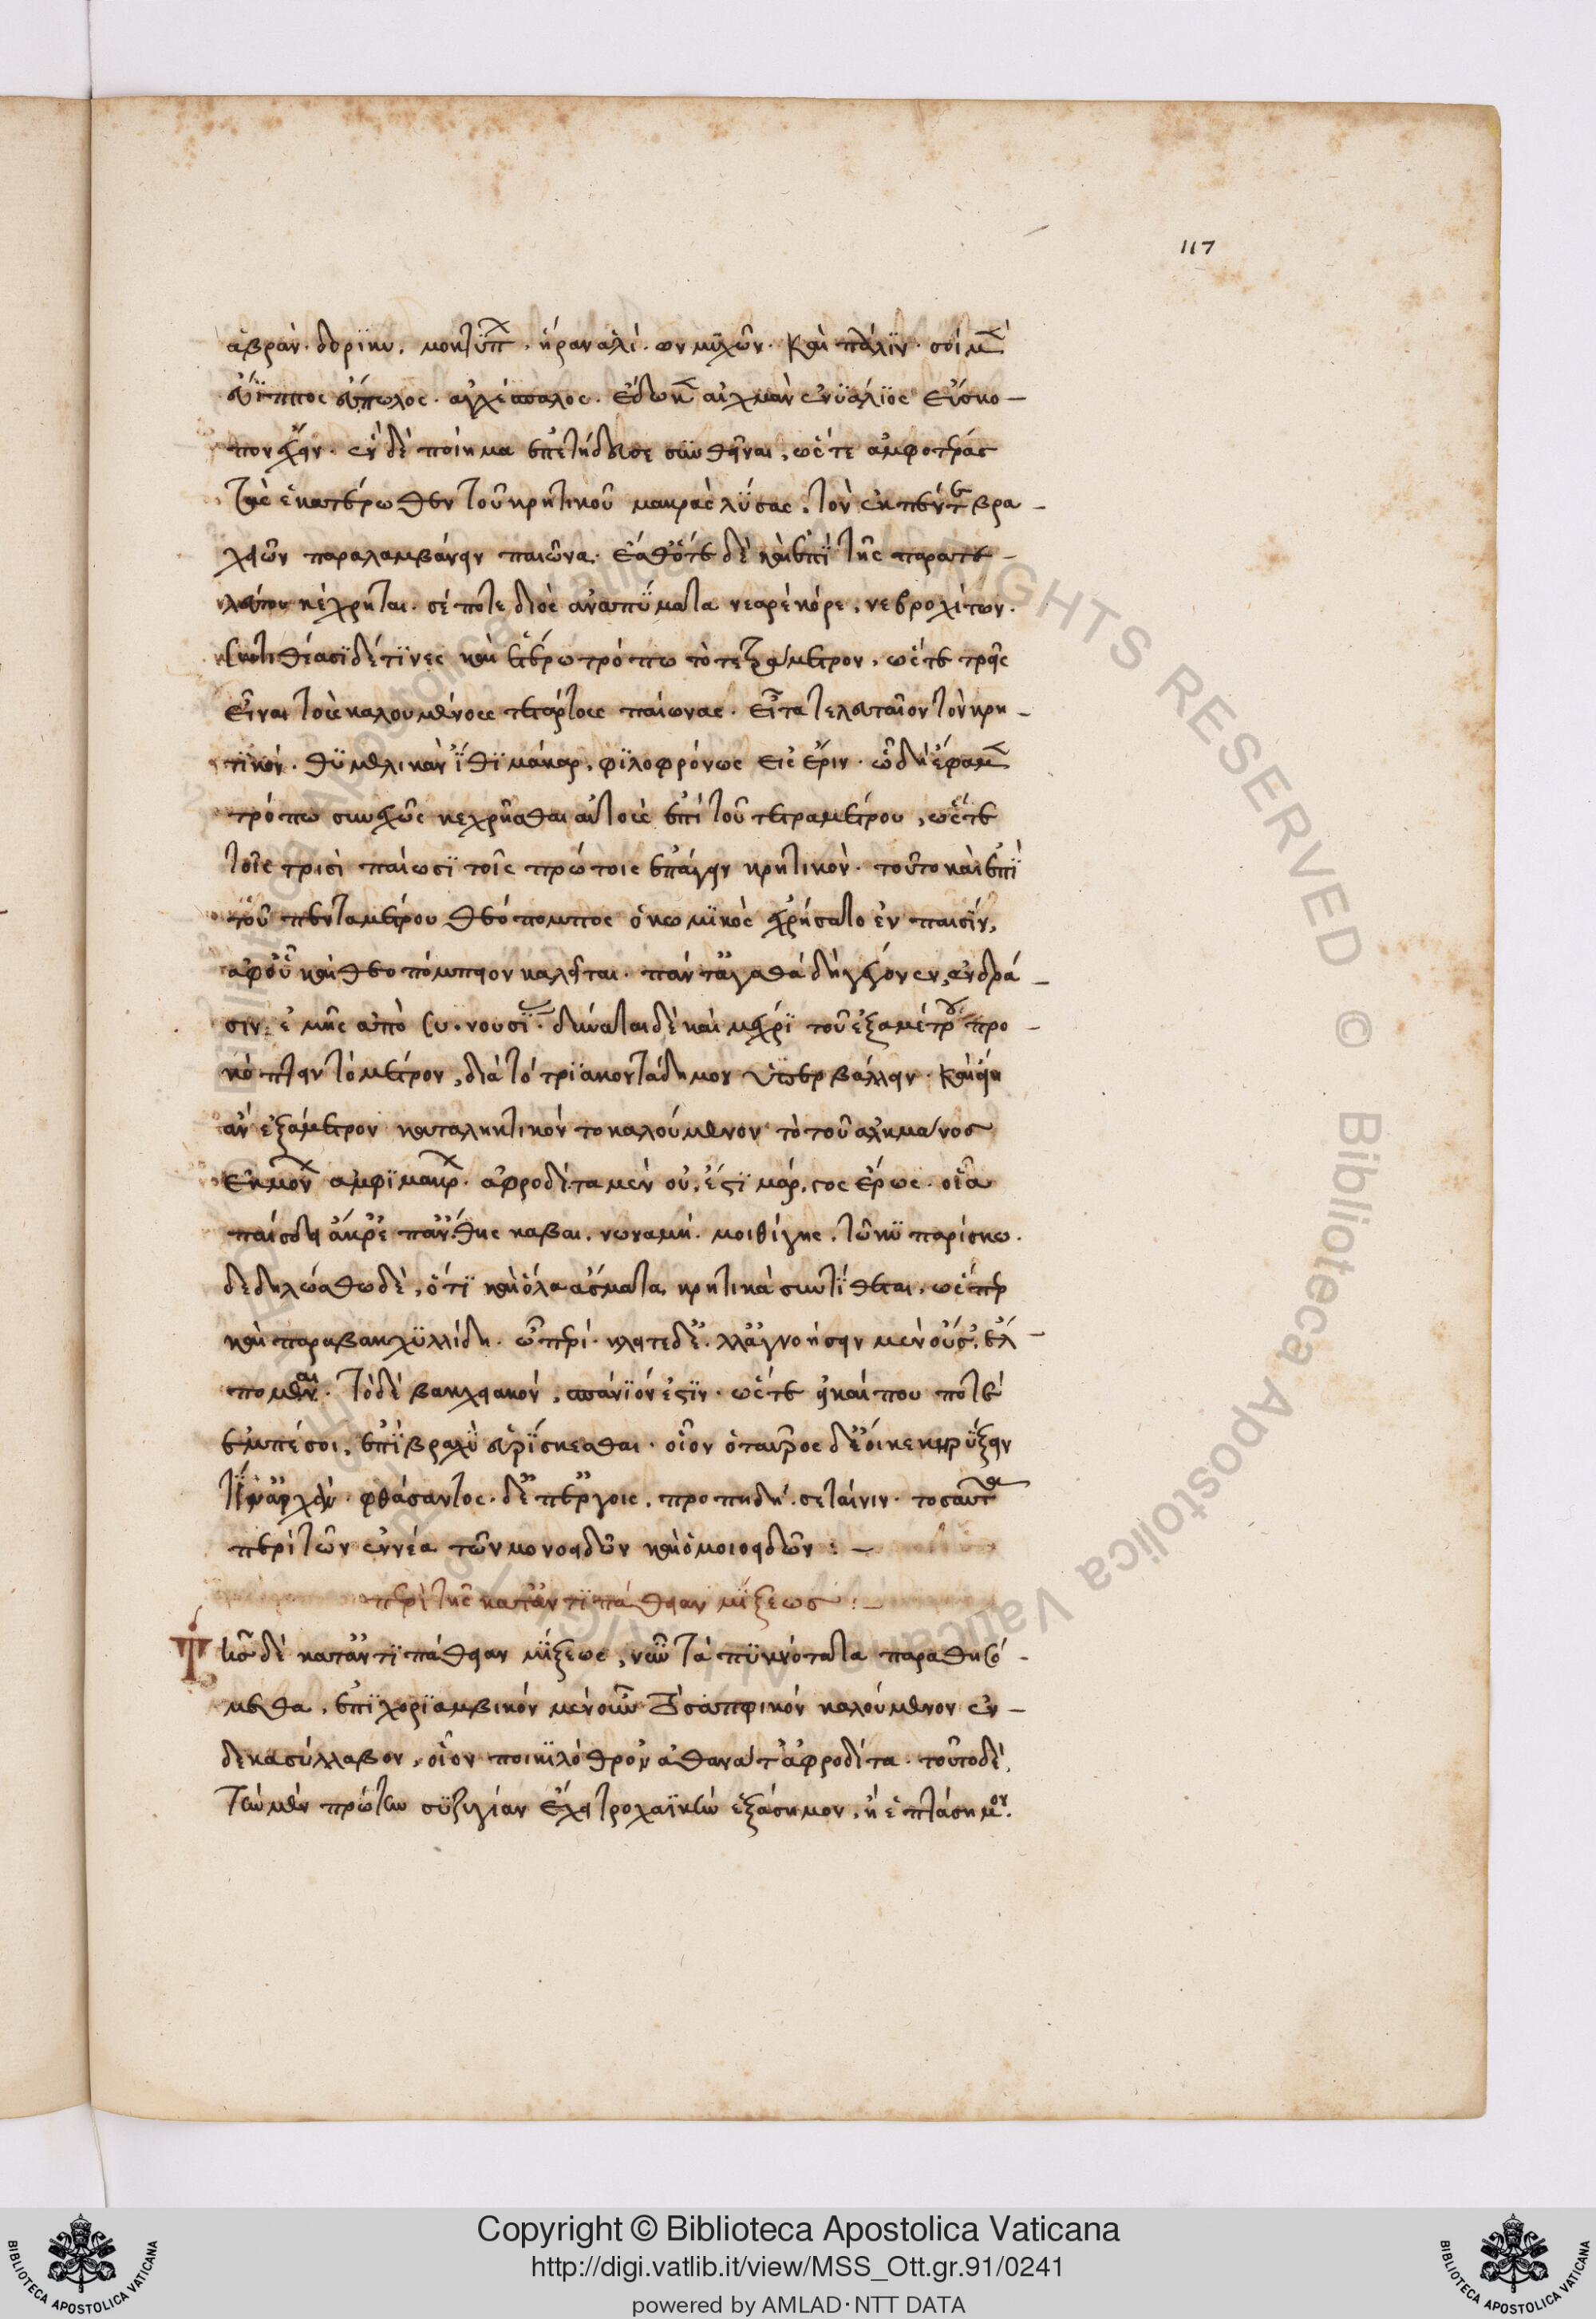 117
ἁβραν· δορίκν. μονϊππ. ἥραναλί. ων μιχῶν. καὶ πάλιν. σοὶ μὲν
εὔϊππος εὔπωλος. ἀγχέσπαλος. ἔδωκεν αἰχμὰν ἐνϋάλϊος εὔσκο-
πον ἔχειν. ἐν δὲ ποίημα ἐπετήδευσε συνθεῖναι, ὥστε ἀμφοτέρας
τὰς ἑκατέρωθεν τοῦ κρητικοῦ μακρὰς λύσας, τὸν ἐκ πέντε βρα-
χειῶν παραλαμβάνειν παιῶνα. ἔσθότε δὲ καὶ ἐπὶ τῆς παρατε-
λεύτου κέχρηται. σέ ποτε διὸς ἀναπύματα νεαρὲ κόρε, νεβροχίτων.
συντιθέασϊ δέ τϊνες καὶ ἑτέρω τρόπω τὸ τετράμετρον, ὥστε τρεῖς
εἶναι τοὺς καλουμένους τετάρτους παίωνας. εἶτα τελευταῖον τὸν κρη-
τϊκόν. θϋμελικὰν ἴθϊ μάκαρ, φϊλοφρόνως εἰς ἔριν. ὧ δὴ ἔφαμεν
τρόπω συνεχῶς κεχρῆσθαι αὐτοὺς ἐπὶ τοῦ τετραμέτρου, ὥστε
τοῖς τρισὶ παίωσϊ τοῖς πρώτοις ἐπάγειν κρητικόν. τοῦτο καὶ ἐπὶ
τοῦ πενταμέτρου θεόπομπος ὁ κωμϊκὸς ἐχρήσατο ἐν παισίν,
ἀφοῦ καὶ θεοπόμπειον καλεῖται. πάντ᾽ἀγαθὰ δὴ γέγονεν, ἀνδρά-
σιν, ἐμῆς ἀπὸ συ. νουσϊ. δύναται δὲ καὶ μέχρϊ τοῦ ἐξαμέτρου προ-
κόπτειν τὸ μέτρον, διὰ τὸ τρϊακοντάσημον ὑπερβάλλειν. καὶ εἴη
ἂν ἐξάμετρον καταληκτικὸν τὸ καλούμενον τὸ τοῦ ἀλκμᾶνος
ἐκ μόνων ἀμφιμάκρων. ἀφροδίτα μὲν οὐ. ἔστϊ μάρ. γος ἔρως. οἷα
παίσδει ἄκρ᾽ἐπ᾽ἄν. θης καβαι. νωναμή. μοιθίγης. τῶ κϋπαρίσκω.
δεδηλώσθω δὲ, ὅτϊ καὶ ὅλα ᾄσματα κρητικὰ συντίθεται, ὥσπερ
καὶ παρὰ βακχϋλλίδη. ὦ περί. κλειτεδέ. λλἀγνοήσειν μὲν οὔσ᾽. ἐλ-
πομαι. τὸ δὲ βακχειακὸν, σπάνϊόν ἐστϊν. ὥστε εἰ καί που ποτε
ἐμπέσοι, ἐπϊβραχὺ εὑρϊσκεσθαι. οἷον ὁ ταῦρος δ᾽ἔοικε κηρύξειν
τϊν᾽ἀρχάν. φθάσαντος. δ᾽ἐπ᾽ἔργοις. προπηδή. σεταίνιν. τοσαῦτα
περὶ τῶν ἐννέα τῶν μονοειδῶν καὶ ὁμοιοειδῶν :-
περὶ τῆς κατ᾽ἀντϊπάθειαν μΐξεως :-
Τῆς δὲ κατ᾽ἀντϊπάθειαν μΐξεως, νῦν τὰ πϋκνότατα παραθησό-
μεθα. ἐπϊχορϊαμβικὸν μὲν οὖν τὸ σαπφικὸν καλούμενον ἑν-
δεκασύλλαβον, οἷον ποικϊλόθρον᾽ ἀθανάτ᾽ἀφροδίτα. τοῦτο δὲ,
τὴν μὲν πρώτην σϋζυγίαν ἔχει τροχαϊκὴν ἑξάσημον, ἢ ἑπτάσημον.
Copyright © Biblioteca Apostolica Vaticana
http://digi.vatlib.it/view/MSS_Ott.gr.91/0241
powered by AMLAD·NTT DATA